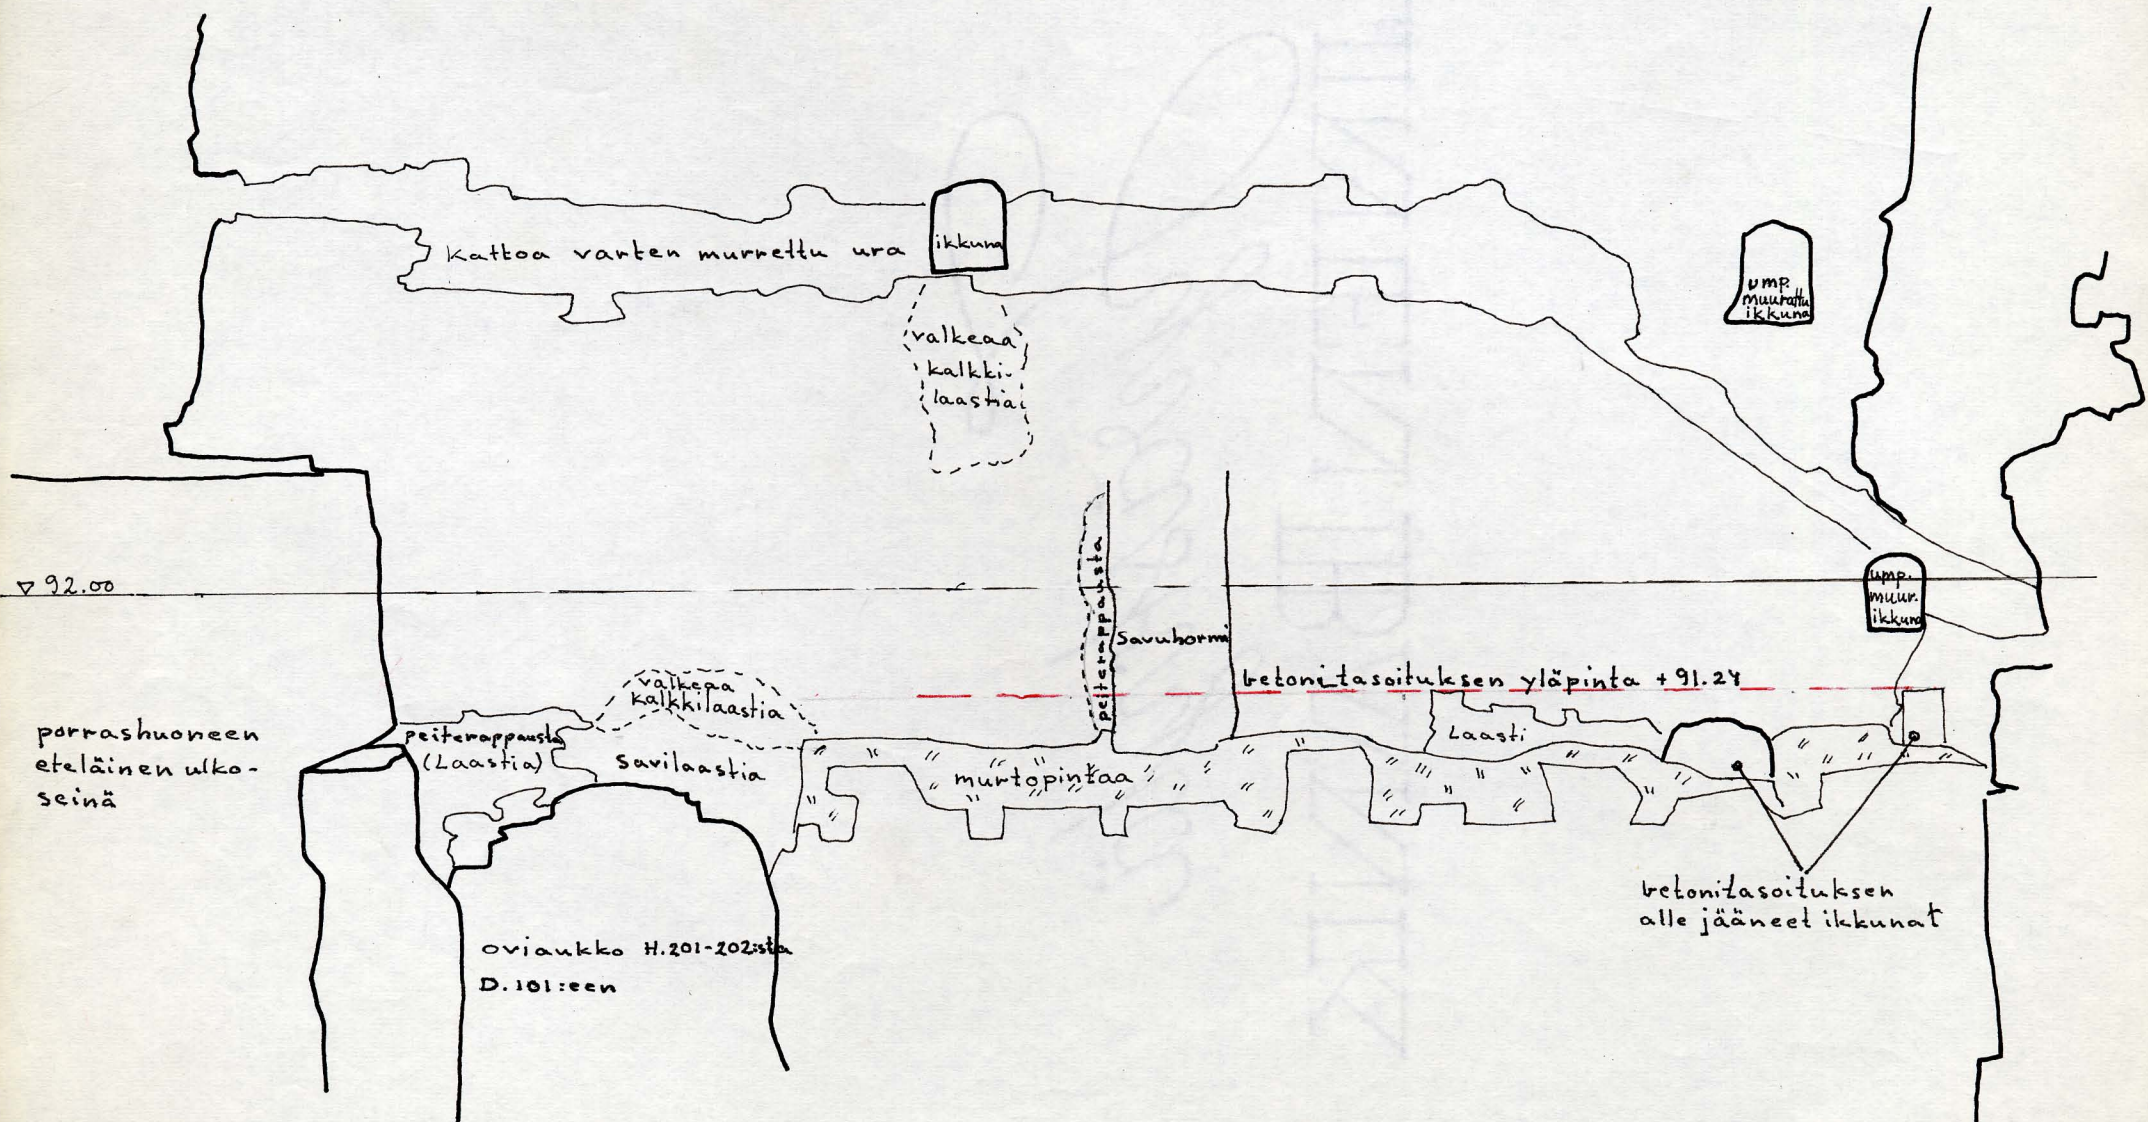 kattoa varten murrettu ura
ikkuna
ump.
muurattu
ikkuna
valkeaa
kalkki-
laastia
▽ 92.00
ump.
muur.
ikkuna
peiterappausta
savuhormi
betonitasoituksen yläpinta +91.24
valkeaa
kalkkilaastia
porrashuoneen
eteläinen ulko-
seinä
peiterappausta
(Laastia)
savilaastia
murtopintaa
Laasti
betonitasoituksen
alle jääneet ikkunat
oviaukko H.201-202:sta
D.101:een